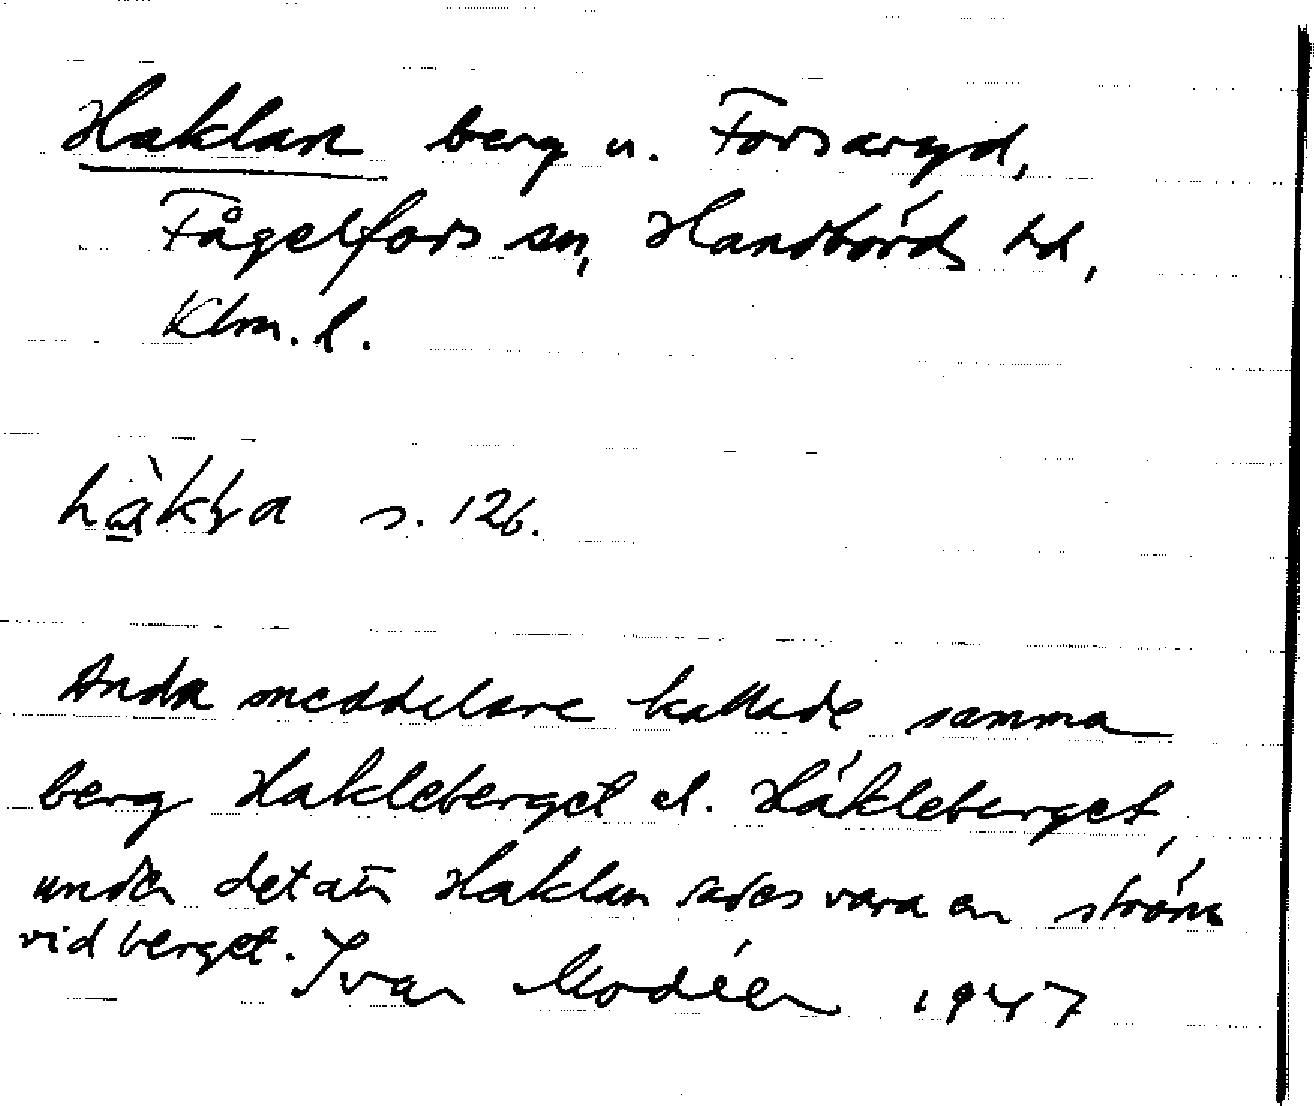 Haklan berg u. Forsaryd,
Fågelfors sn, Handbörds hd,
Klm. l.
s. 126.
Andra meddelare kallade samma
berg Hakleberget el. Håkleberget,
under det att Haklan sades vara en ström
vid berget. Ivar Modéer 1947